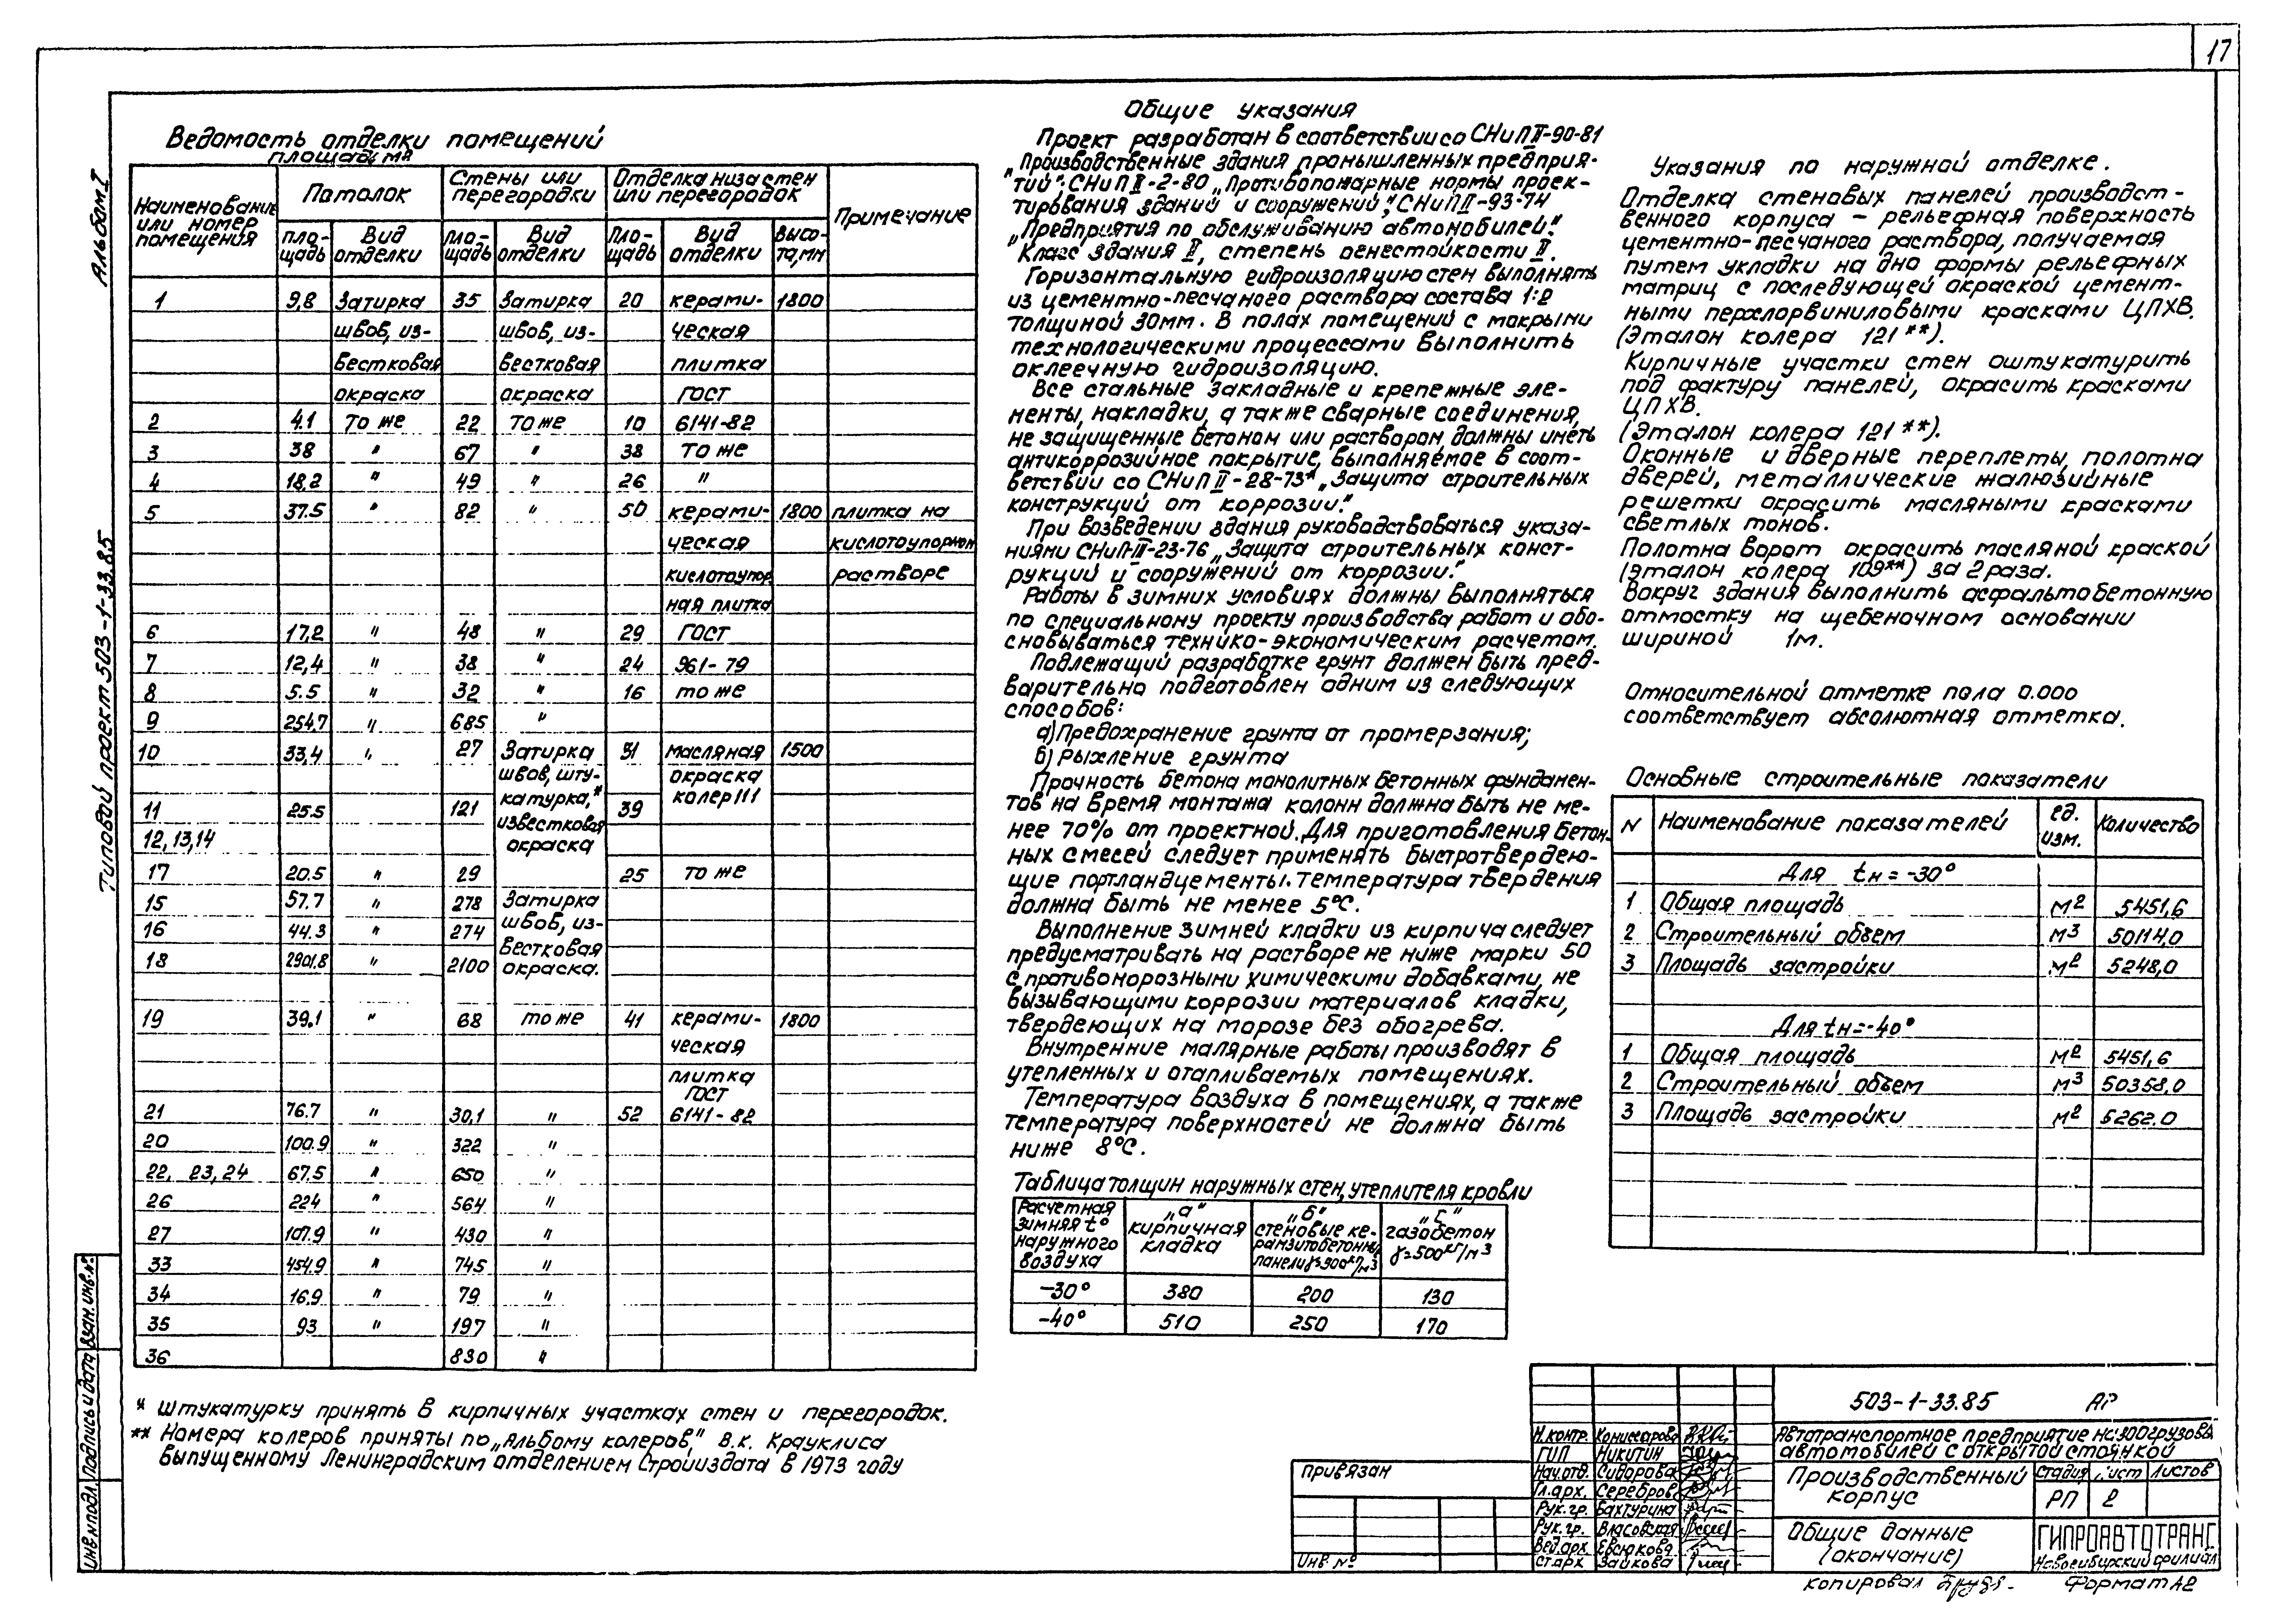 17
Альбом I
Типовой проект 503-1-33.85
Ведомость отделки помещений
площадь м2
Наименование или номер помещения
Потолок
Стены или перегородки
Отделка низа стен или перегородок
Примечание
пло-щадь
Вид отделки
пло-щадь
Вид отделки
пло-щадь
Вид отделки
Высо-та, мм
1 9,8 Затирка 35 Затирка 20 керами- 1800
швов, из- швов, из- ческая
вестковая вестковая плитка
окраска окраска ГОСТ
2 4.1 То же 22 То же 10 6141-82
3 38 " 67 " 38 То же
4 18,2 " 49 " 26 "
5 37.5 " 82 " 50 керами- 1800 плитка на
ческая кислотоупорном
кислотоупор растворе
ная плитка
6 17,2 " 48 " 29 ГОСТ
7 12,4 " 38 " 24 961-79
8 5.5 " 32 " 16 то же
9 254,7 " 685 "
10 33,4 " 27 Затирка 31 масляная 1500
швов, шту- окраска
катурка,* колер III
11 25.5 121 39
известковая
12, 13,14 окраска
17 20.5 " 29 25 то же
15 57.7 " 278 Затирка
16 44.3 " 274 швов, из-
вестковая
18 2901,8 " 2100 окраска.
19 39.1 " 68 то же 41 керами- 1800
ческая
плитка
ГОСТ
21 76.7 " 30,1 " 52 6141-82
20 100.9 " 322 "
22, 23,24 67.5 " 650 "
26 224 " 564 "
27 107.9 " 430 "
33 454,9 " 745 "
34 16.9 " 79 "
35 93 " 197 "
36 830 "
* штукатурку принять в кирпичных участках стен и перегородок.
** Номера колеров приняты по „Альбому колеров," В.К. Крауклиса
выпущенному Ленинградским отделением Стройиздата в 1973 году
Общие указания
Проект разработан в соответствии со СНиП II-90-81
„Производственные здания промышленных предприя-
тий". СНиП II-2-80 „Противопожарные нормы проек-
тирования зданий и сооружений", СНиП II-93-74
„Предприятия по обслуживанию автомобилей."
Класс здания II, степень огнестойкости II.
Горизонтальную гидроизоляцию стен выполнять
из цементно-песчаного раствора состава 1:2
толщиной 30мм. В полах помещений с мокрыми
технологическими процессами выполнить
оклеечную гидроизоляцию.
Все стальные закладные и крепежные эле-
менты, накладки, а также сварные соединения,
не защищенные бетоном или раствором, должны иметь
антикоррозийное покрытие, выполняемое в соот-
ветствии со СНиП II-28-73* „Защита строительных
конструкций от коррозии".
При возведении здания руководствоваться указа-
ниями СНиП-III-23-76 „Защита строительных конст-
рукций и сооружений от коррозии."
Работы в зимних условиях должны выполняться
по специальному проекту производства работ и обо-
сновываться технико-экономическим расчетом.
Подлежащий разработке грунт должен быть пред-
варительно подготовлен одним из следующих
способов:
а) Предохранение грунта от промерзания;
б) Рыхление грунта
Прочность бетона монолитных бетонных фундамен-
тов на время монтажа колонн должна быть не ме-
нее 70% от проектной. Для приготовления бетон-
ных смесей следует применять быстротвердею-
щие портландцементы. Температура твердения
должна быть не менее 5°С.
Выполнение зимней кладки из кирпича следует
предусматривать на растворе не ниже марки 50
с противоморозными химическими добавками, не
вызывающими коррозии материалов кладки,
твердеющих на морозе без обогрева.
Внутренние малярные работы производят в
утепленных и отапливаемых помещениях.
Температура воздуха в помещениях, а также
температура поверхностей не должна быть
ниже 8°С.
Таблица толщин наружных стен, утеплителя кровли
Расчетная зимняя t° наружного воздуха
„а" кирпичная кладка
„б" стеновые ке-рамзитобетонные панели γ=900кг/м3
газобетон γ=500кг/м3
-30° 380 200 130
-40° 510 250 170
Указания по наружной отделке.
Отделка стеновых панелей производст-
венного корпуса – рельефная поверхность
цементно-песчаного раствора, получаемая
путем укладки на дно формы рельефных
матриц с последующей окраской цемент-
ными перхлорвиниловыми красками ЦПХВ.
(Эталон колера 121**).
Кирпичные участки стен оштукатурить
под фактуру панелей, окрасить красками
ЦПХВ.
(Эталон колера 121**).
Оконные и дверные переплеты, полотна
дверей, металлические жалюзийные
решетки окрасить масляными красками
светлых тонов.
Полотна ворот окрасить масляной краской
(эталон колера 109**) за 2 раза.
Вокруг здания выполнить асфальтобетонную
отмостку на щебеночном основании
шириной 1м.
Относительной отметке пола 0.000
соответствует абсолютная отметка.
Основные строительные показатели
N Наименование показателей ед. изм. Количество
Для tн = -30°
1 Общая площадь м2 5451,6
2 Строительный объем м3 50114.0
3 Площадь застройки м2 5248,0
Для tн=-40°
1 Общая площадь м2 5451,6
2 Строительный объем м3 50358,0
3 Площадь застройки м2 5262.0
503-1-33.85 АР
Автотранспортное предприятие на 300 грузовых
автомобилей с открытой стоянкой
Производственный корпус
Стадия Лист Листов
РП 2
Общие данные (окончание)
ГИПРОАВТОТРАНС
Новосибирский филиал
Н.контр. Комиссарова
ГИП Никитин
Нач.отд. Сидорова
Гл.арх. Серебров
Рук.гр. Бахтурина
Рук.гр. Власовская
Вед.арх. Евсюкова
Ст.арх Зайкова
Привязан
Инв №
Инв N подл. Подпись и дата Взам. инв. №
копировал
Формат А2